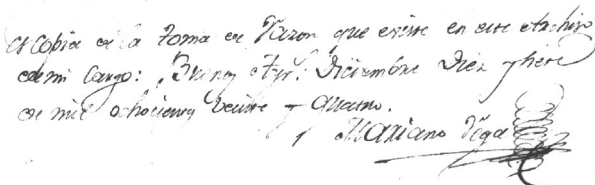 es copia de la toma de razon que existe en este Archivo
de mi cargo: Buenos Ayr.s Diciembre Diez y siete
de mil ochocientos veinte y quatro.
Mariano Vega